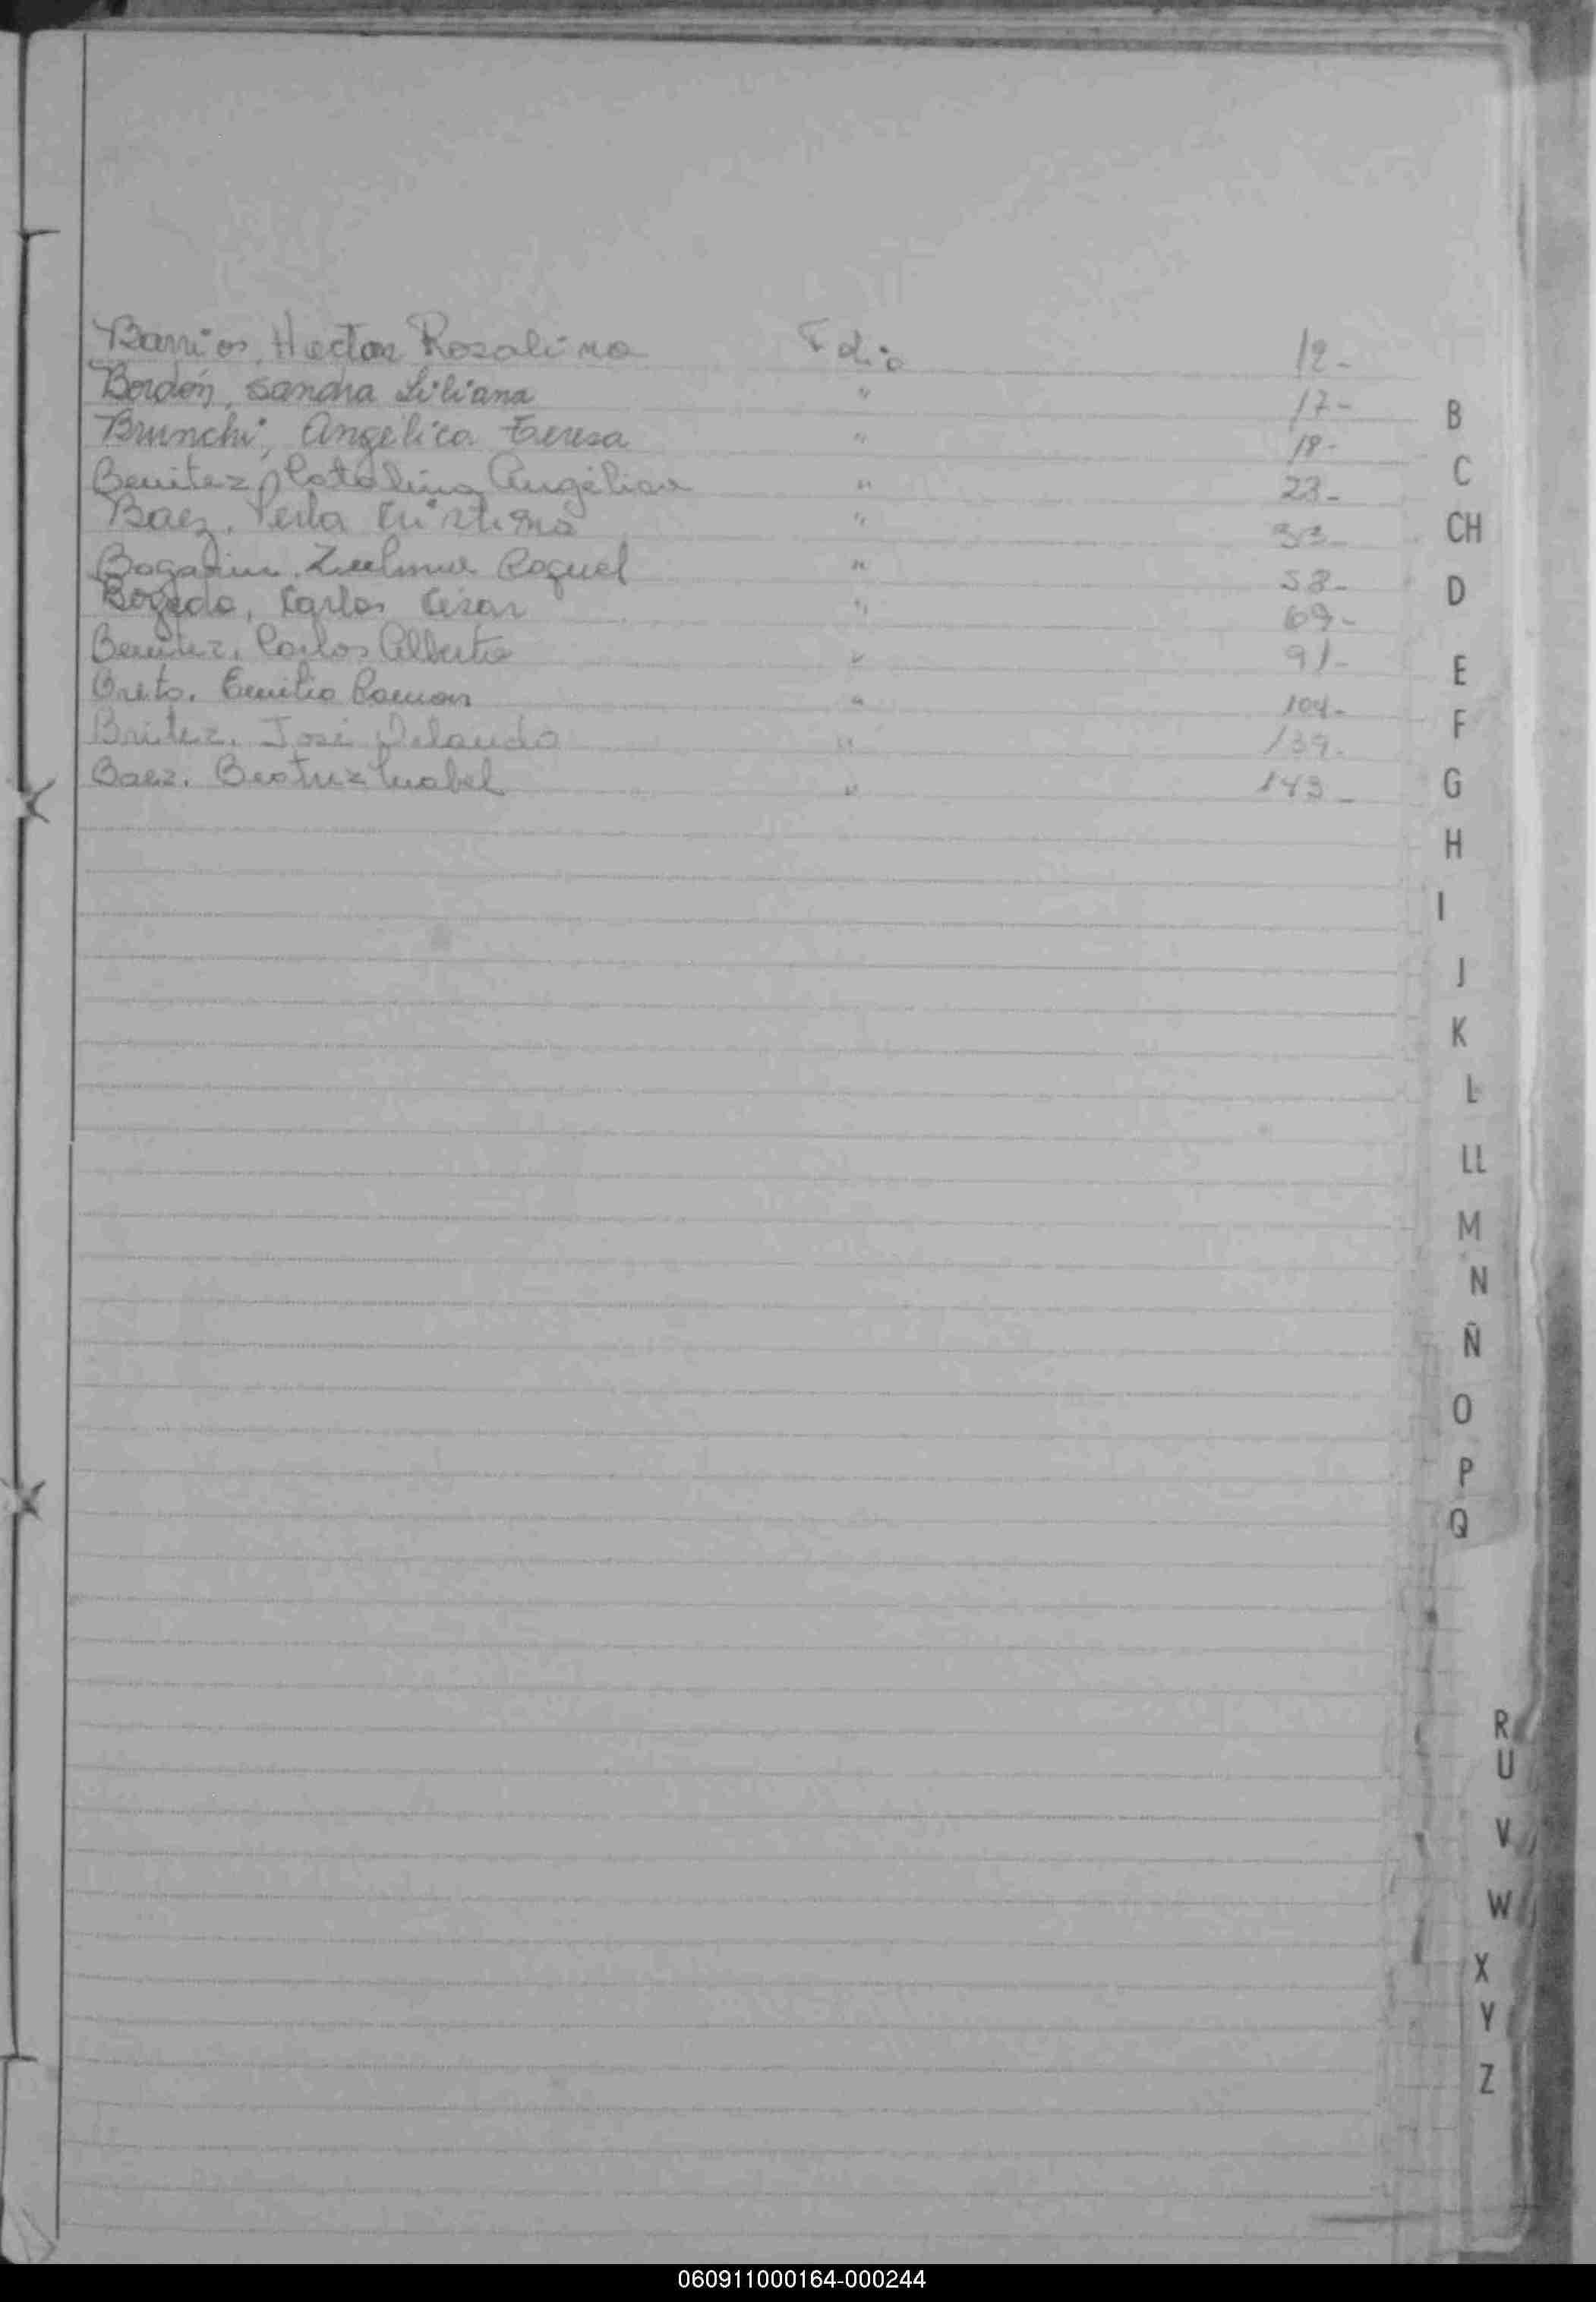 Barrios, Hector Rosalino Folio 12-
Bordón, Sandra Liliana " 17-
Brunchi, Angélica Teresa " 18-
Benitez, Catalina Angélica " 23-
Baez, Perla Cristina " 33-
Bogarin, Zulma Raquel " 58-
Bogado, Carlos César " 69-
Benitez, Carlos Alberto " 91-
Brito, Emilio Ramon " 104-
Britez, José " 139-
Baez, Beatriz Mabel " 143-
B
C
CH
D
E
F
G
H
I
J
K
L
LL
M
N
Ñ
O
P
Q
R
U
V
W
X
Y
Z
060911000164-000244